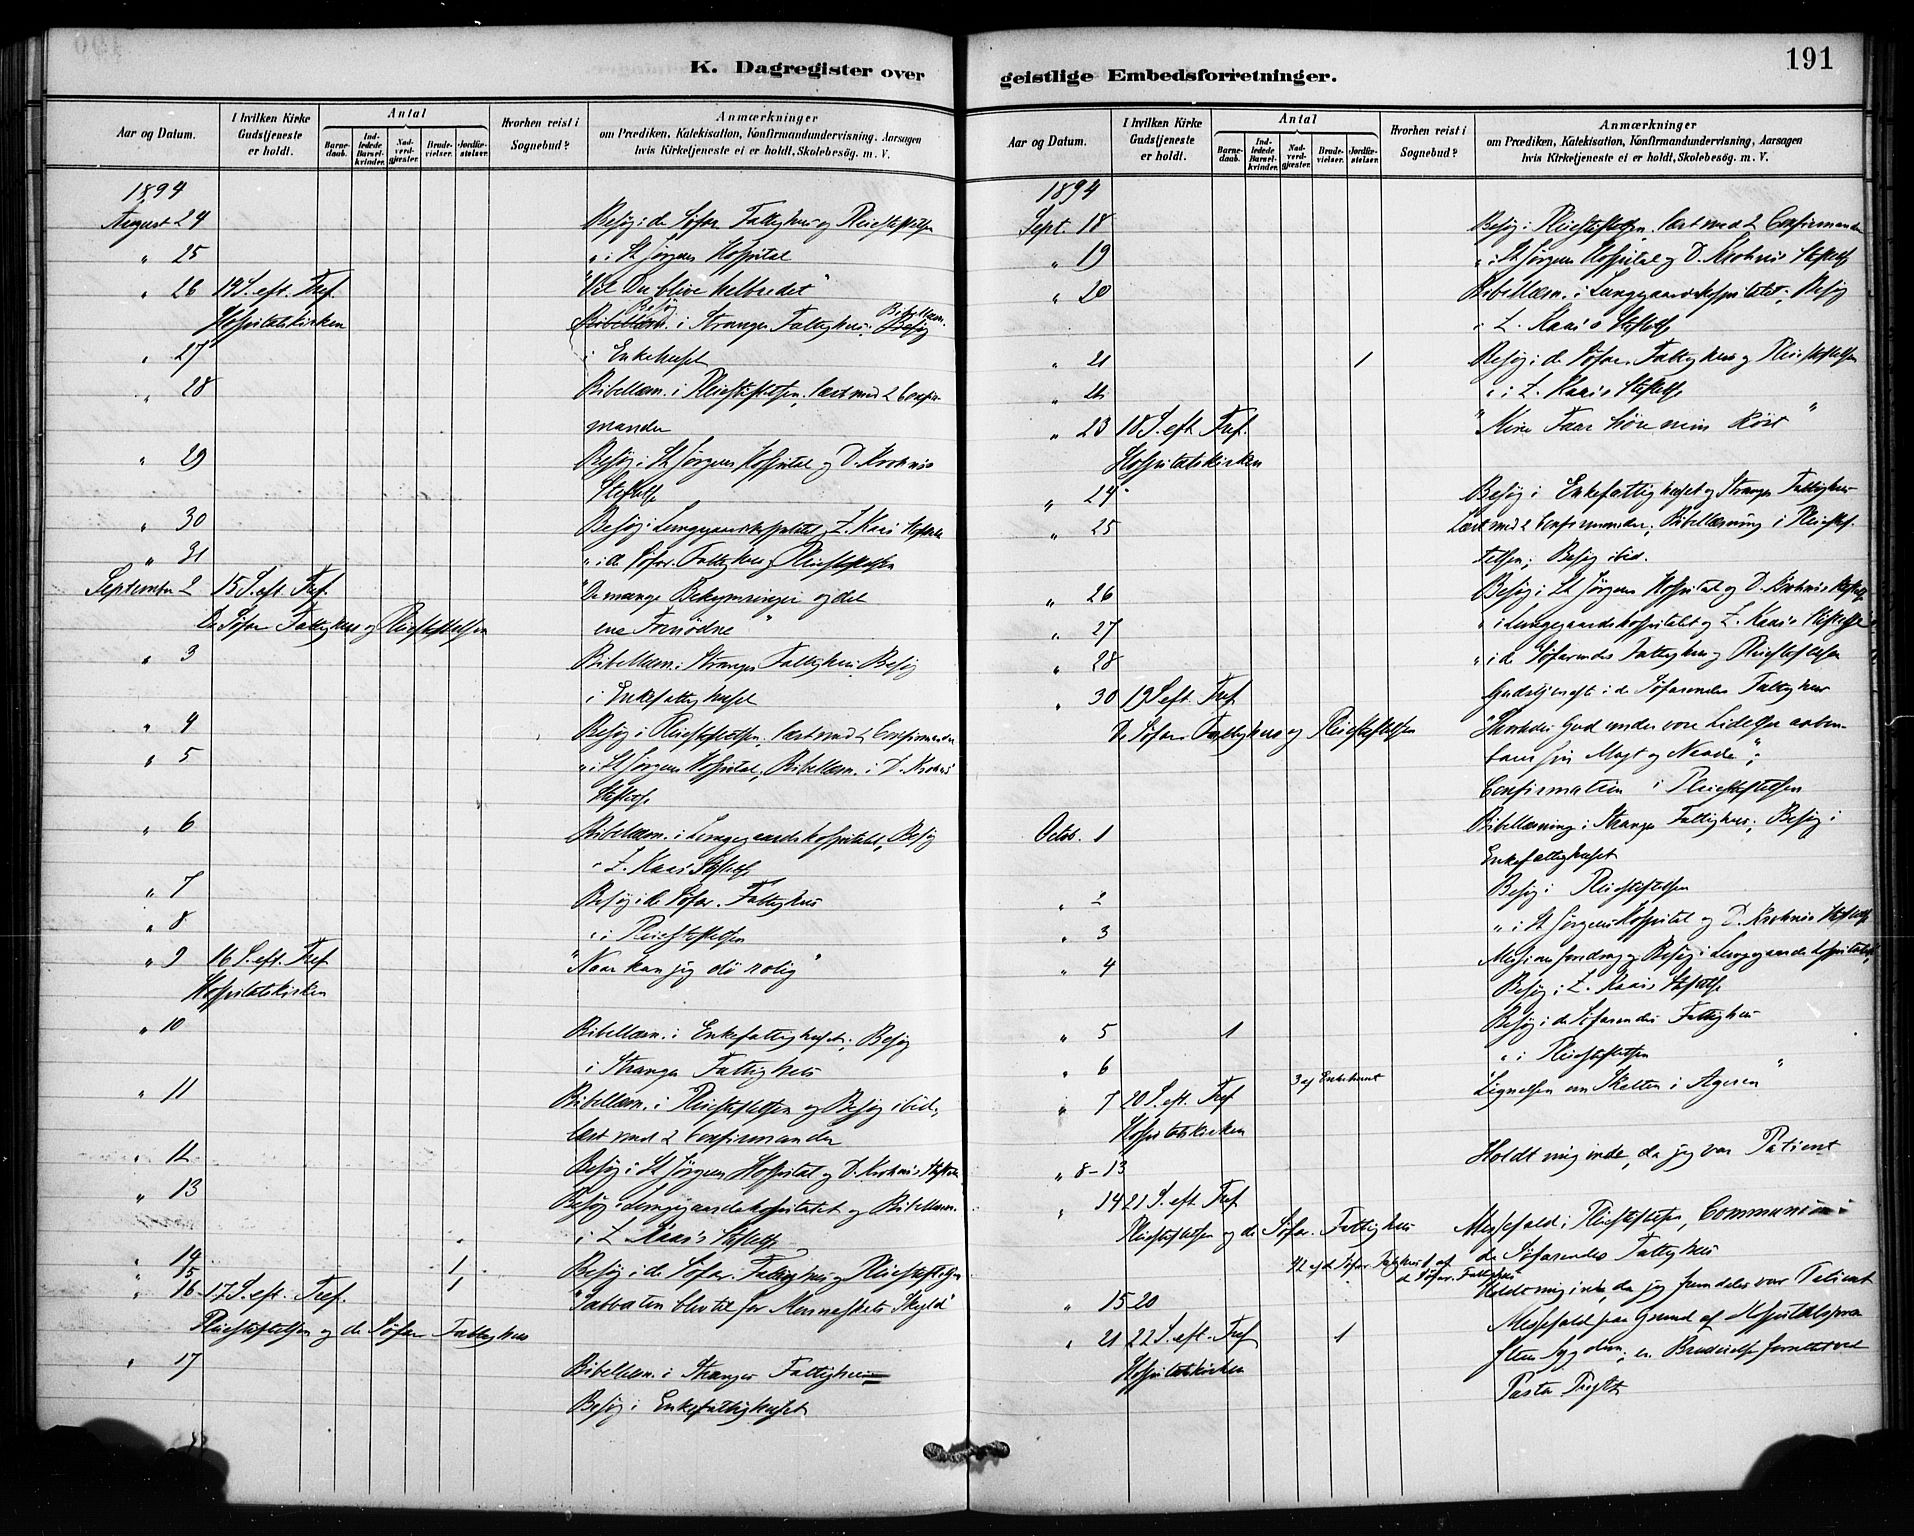 K. Dagregister over
Aar og Datum.
I hvilken Kirke Gudstjeneste er holdt.
Antal
Barnedaab.
Indledede Barselkvinder.
Nadverdgjester.
Brudevielser.
Jordfæstelser.
Hvorhen reist i Sognebud?
Anmærkninger
om Prædiken, Katekisation, Konfirmandundervisning, Aarsagen
hvis Kirketjeneste ei er holdt, Skolebesøg. m. V.
1894
August 24 Besøg i de Søfar. Fattighus og Pleiestiftelsen
" 25 " i St Jørgens Hospital
" 26 Tref. "Vil Du blive helbredet"
Hospitalskirken Besøg i Stranges Fattighus, Bibellæsn.
" 27 i Enkehuset
" 28 Bibellæsn. i Pleiestiftelsen, læst med 2 Confir-
mander
" 29 Besøg i St Jørgens Hospital og D. Krohns
Stiftelse
" 30 Besøg i Lungegaardshospitalet, Z. Kaas's Stiftelse
" 31 " i de Søfar. Fattighus, Pleiestiftelsen
September 2 15 S. eft. Tref. "De mange Bekymringer og det
De Søfar Fattighus og Pleiestiftelsen ene Fornødne"
" 3 Bibellæsn. i Stranges Fattighus, Besøg
i Enkefattighuset
" 4 Besøg i Pleiestiftelsen, læst med 2 Confirmander
" 5 " i St Jørgens Hospital, Bibellæsn. i D. Krohns
Stiftelse
" 6 Bibellæsn. i Lungegaardshospitalet, Besøg
i Z. Kaas's Stiftelse
" 7 Besøg i de Søfar. Fattighus
" 8 " i Pleiestiftelsen
" 9 16 S. eft. Tref "Naar kan jeg dø rolig"
Hospitalskirken
" 10 Bibellæsn. i Enkefattighuset, Besøg
i Stranges Fattighus
" 11 Bibellæsn. i Pleiestiftelsen og Besøg ibid,
læst med 2 Confirmander
" 12 Besøg i St Jørgens Hospital og D. Krohns Stiftelse
" 13 Besøg i Lungegaardshospitalet og Bibellæsn.
i Z Kaas's Stiftelse
" 14 1
" 15 1 Besøg i de Søfar. Fattighus og Pleiestiftelsen
" 16 17 S. eft. Tref. "Sabbaten blev til for Menneskets Skyld"
Pleiestiftelsen og de Søfar Fattighus
" 17 Bibellæsn. i Stranges Fattighus
Besøg i Enkefattighuset
geistlige Embedsforretninger.
191
Aar og Datum.
I hvilken Kirke Gudstjeneste er holdt.
Antal
Barnedaab.
Indledede Barselkvinder.
Nadverdgjester.
Brudevielser.
Jordfæstelser.
Hvorhen reist i Sognebud?
Anmærkninger
om Prædiken, Katekisation, Konfirmandundervisning, Aarsagen
hvis Kirketjeneste ei er holdt, Skolebesøg. m. V.
1894
Sept. 18 Besøg i Pleiestiftelsen, læst med 2 Confirmander
" 19 " i St Jørgens Hospital og D. Krohns Stiftelse
" 20 Bibellæsn. i Lungegaardshospitalet, Besøg
i Z. Kaas's Stiftelse
" 21 1 Besøg i de Søfar. Fattighus og Pleiestiftelsen
" i Z. Kaas's Stiftelse
" 23 18 S. eft Tref. "Mine Faar høre min Røst"
Hospitalskirken
" 24 Besøg i Enkefattighuset og Stranges Fattighus
" 25 Læst med 2 Confirmander, Bibellæsning i Pleiestif-
telsen; Besøg ibid.
" 26 Besøg i St Jørgens Hospital og D. Krohns Stiftelse
" 27 " i Lungegaardshospitalet og Z. Kaas's Stiftelse
" 28 " i de Søfarendes Fattighus og Pleiestiftelsen
" 30 19 S. eft. Tref Gudstjeneste i de Søfarendes Fattighus
De Søfar Fattighus og Pleiestiftelsen "Hvorledes Gud under vore Lidelser aaben-
barer sin Magt og Naade";
Confirmation i Pleiestiftelsen
Octob. 1 Bibellæsning i Stranges Fattighus; Besøg i
Enkefattighuset
" 2 Besøg i Pleiestiftelsen
" 3 " i St Jørgens Hospital og D. Krohns Stiftelse
" 4 Missionsforedrag og Besøg i Lungegaardshospitalet,
Besøg i Z. Kaas's Stiftelse
" 5 1 Besøg i de Søfarendes Fattighus
" 6 " i Pleiestiftelsen
" 7 20 S. eft. Tref 3 af Enkehuset "Lignelsen om Skatten i Ageren"
Hospitalskirken
" 8-13 Holdt mig inde, da jeg var Patient
" 14 21 S. eft. Tref
Pleiestiftelsen og de Søfar. Fattighus Messefald i Pleiestiftelsen, Communion i
de Søfarendes Fattighus
" 15 20 Holdt mig inde, da jeg fremdeles var Patient
" 21 22 S. eft. Tref 1 Messefald paa Grund af Hospitalspræ-
Hospitalskirken stens Sygdom; en Brudevielse forrettet ved
Pastor